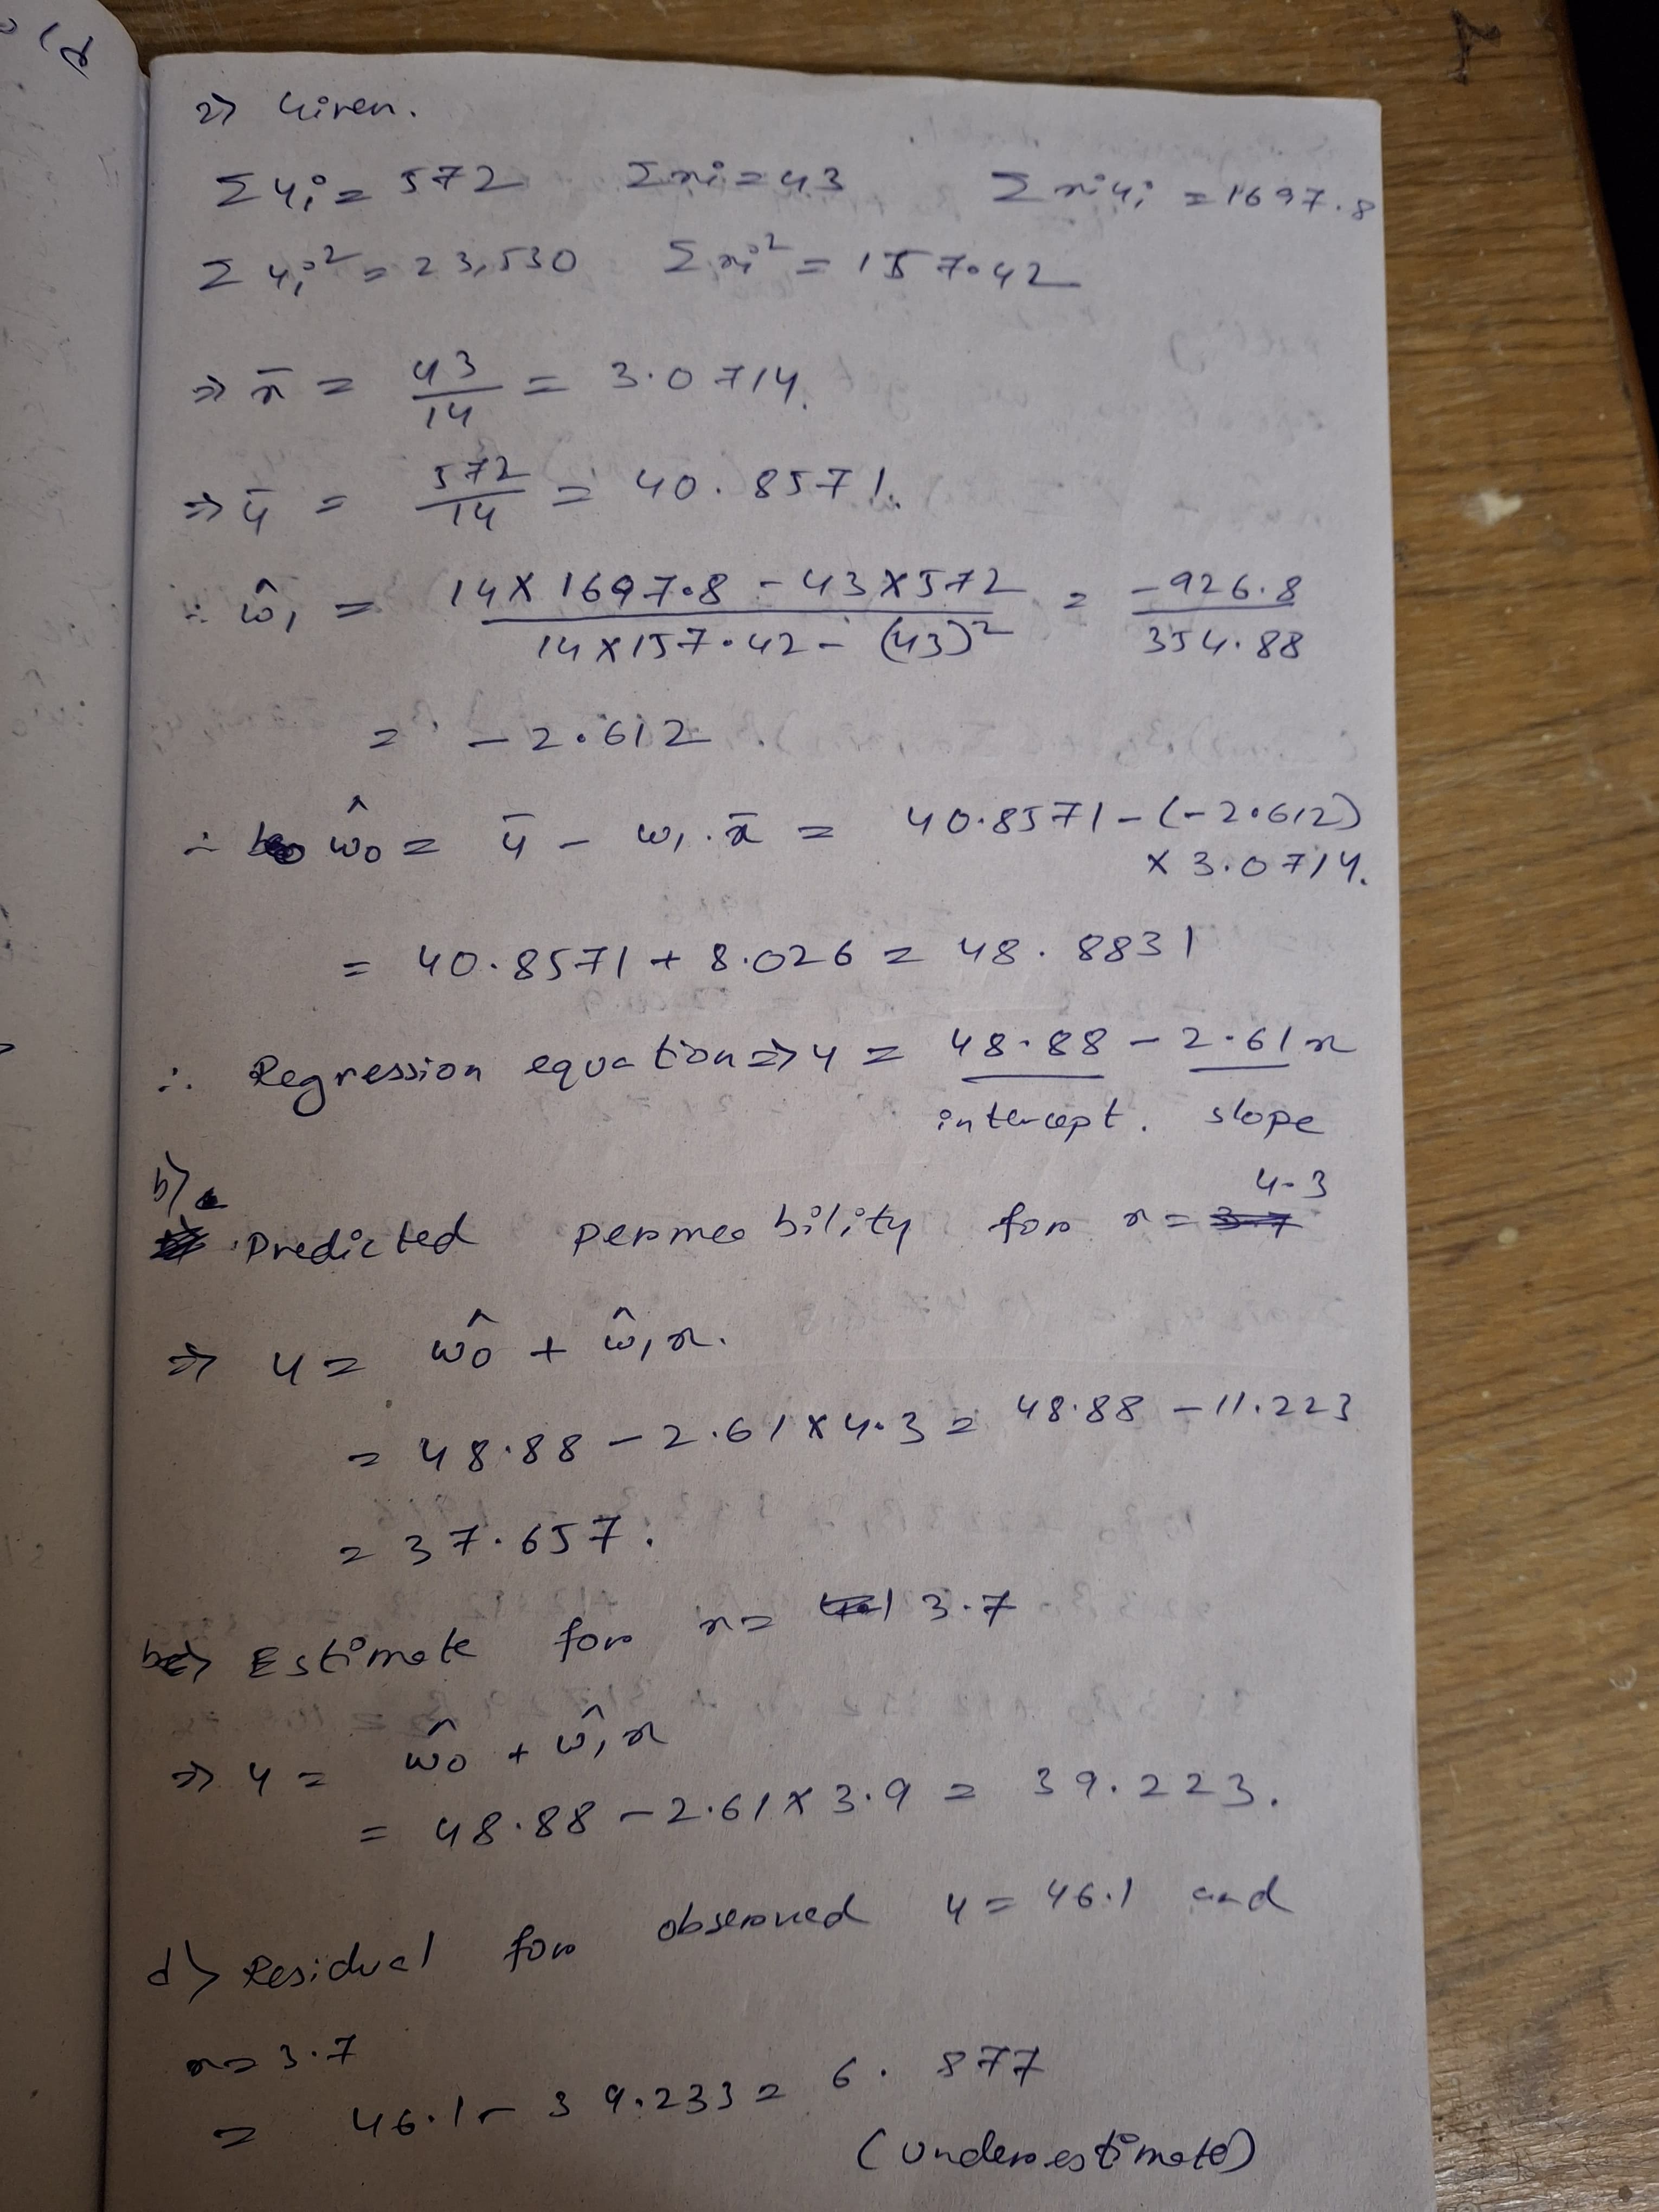 2) Given.
Σyi = 572 Σxi = 43 Σxiyi = 1697.8
Σyi² = 23,530 Σxi² = 157.42
⇒ x̄ = 43/14 = 3.0714.
⇒ ȳ = 572/14 = 40.8571.
∴ ŵ₁ = (14×1697.8 − 43×572)/(14×157.42 − (43)²) = −926.8/354.88
= −2.612
∴ ŵ₀ = ȳ − w₁.x̄ = 40.8571 − (−2.612)
× 3.0714.
= 40.8571 + 8.026 = 48.8831
∴ Regression equation ⇒ y = 48.88 − 2.61x
intercept. slope
b)
Predicted permeability for x = 4.3
⇒ y = ŵ₀ + ŵ₁x.
= 48.88 − 2.61×4.3 = 48.88 − 11.223
= 37.657.
c) Estimate for x = 3.7
⇒ y = ŵ₀ + ŵ₁x
= 48.88 − 2.61×3.9 = 39.223.
d) Residual for observed y = 46.1 and
x = 3.7
= 46.1 − 39.233 = 6.877
(Underestimate)